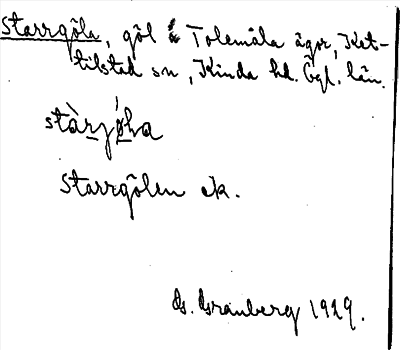 Starrgöla, göl å Tolemåla ägor, Ket-
tilstad sn, Kinda hd. Ögl. län.
stàrjǿla
Starrgölen ek.
G. Granberg 1929.